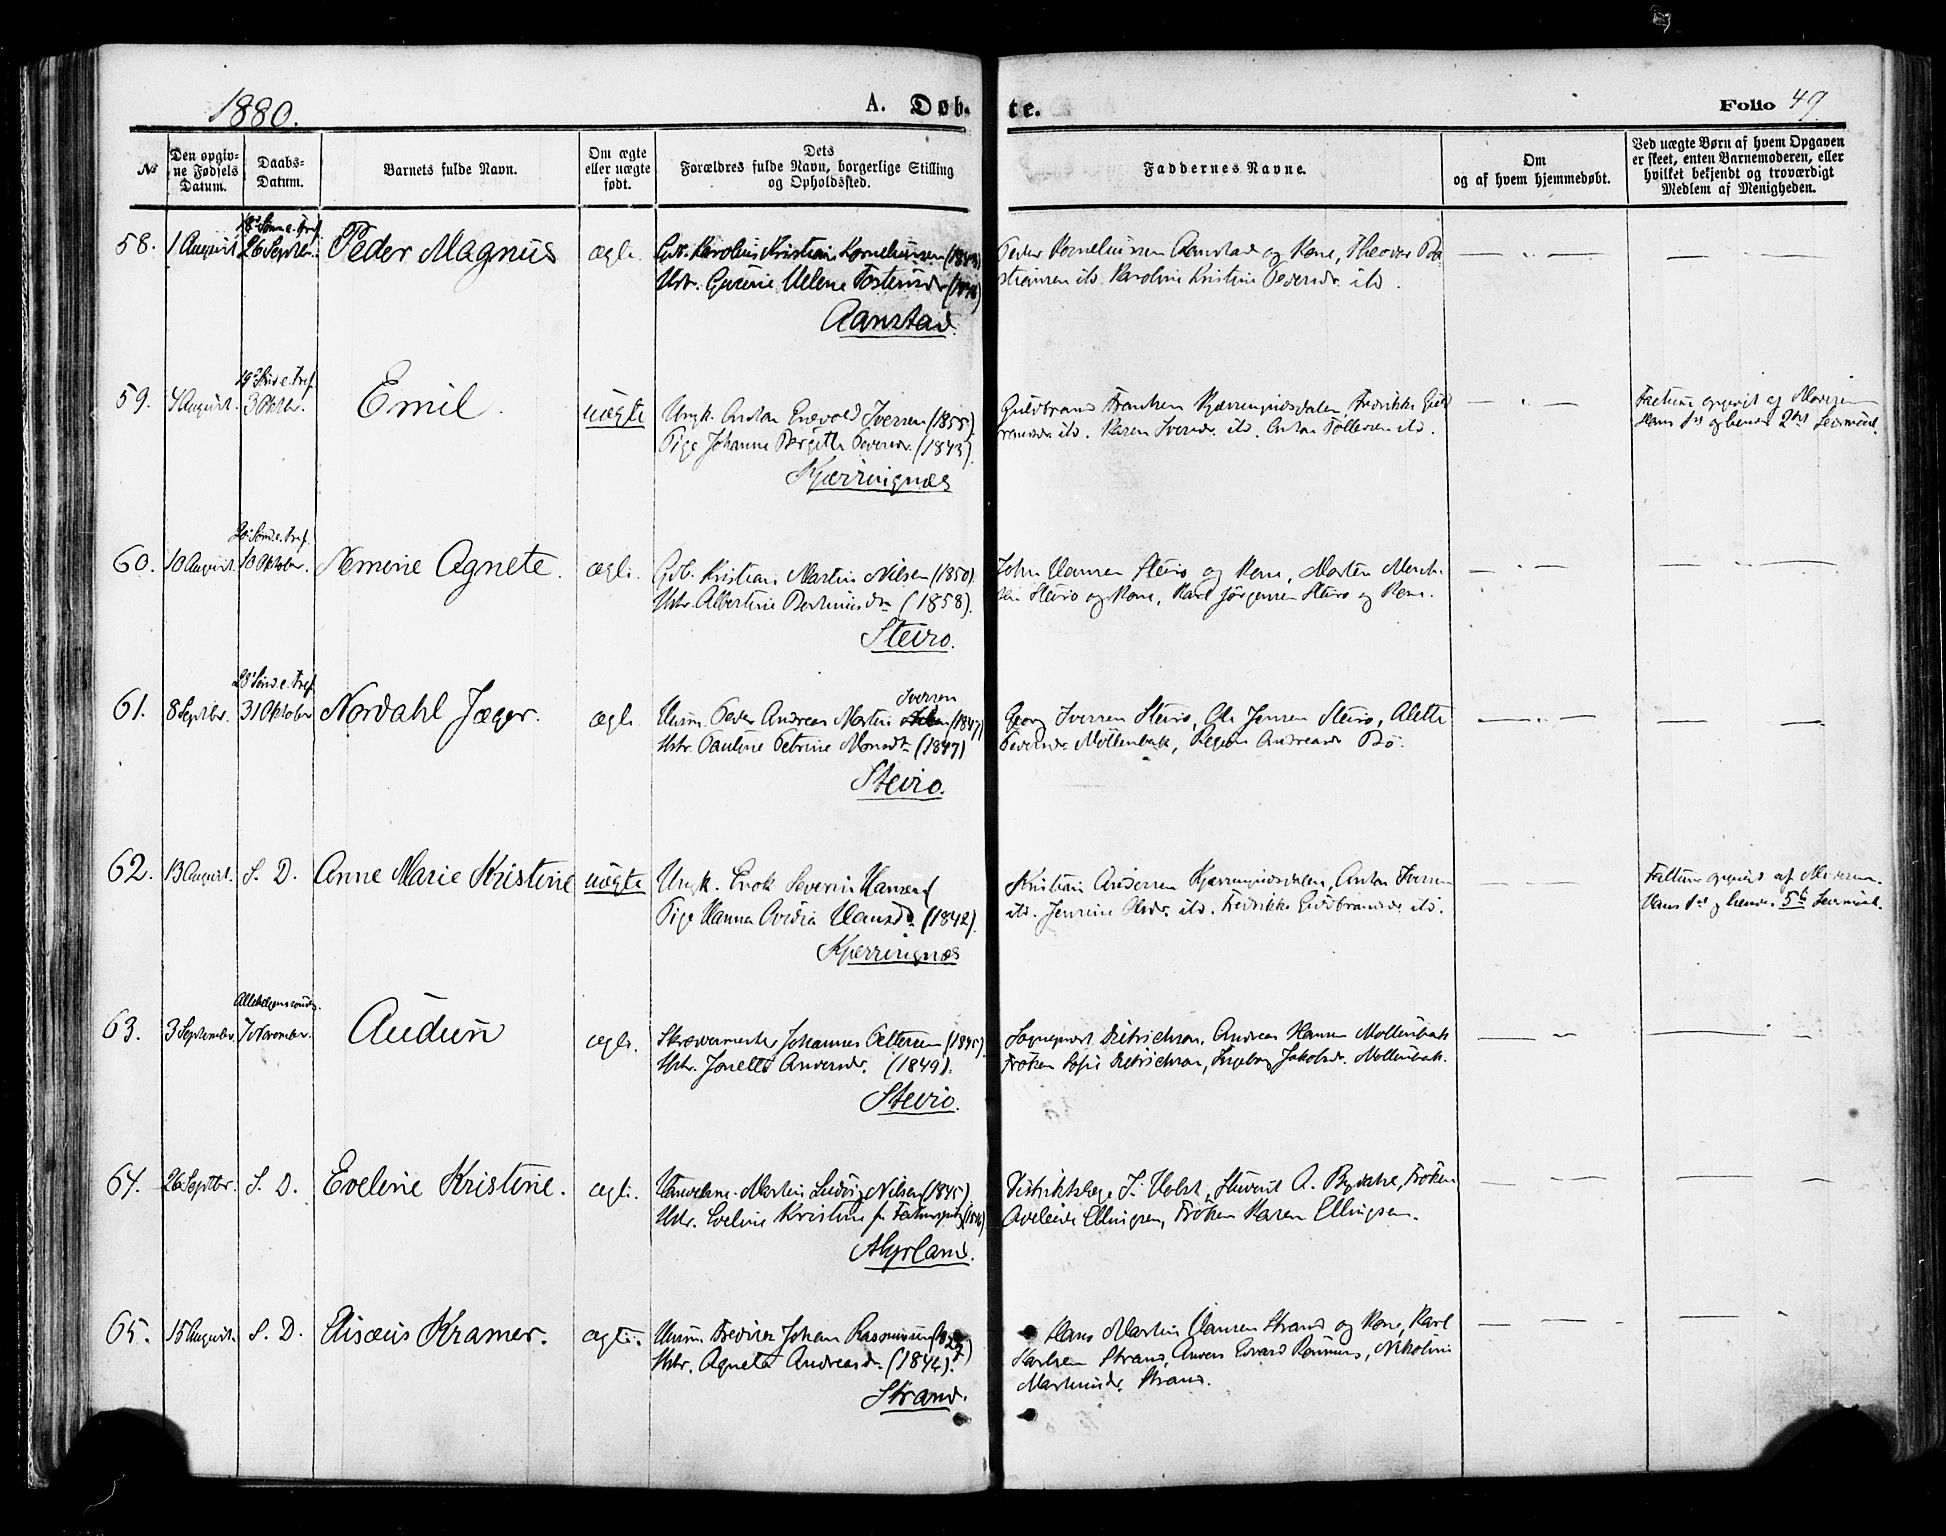 1880.
A. Døbte.
Folio 49
№
Den opgivne Fødsels Datum.
Daabs-Datum.
Barnets fulde Navn.
Om ægte eller uægte født.
Dets Forældres fulde Navn, borgerlige Stilling og Opholdssted.
Faddernes Navne.
Om og af hvem hjemmedøbt.
Ved uægte Børn af hvem Opgaven er skeet, enten Barnemoderen, eller hvilket bekjendt og troværdigt Medlem af Menigheden.
58. 1 August. 26 Septbr. Peder Magnus ægte.
Gdb. Karolius Kristian Korneliussen
Hstr. Gurine Helene
Aanstad.
Peder Korneliussen Aanstad og Kone, Theodor
itd. Karoline Kristine Pedersdr. itd.
59. 4 August. 19de Sønd. e. Tref. 3 Oktbr. Emil. uægte
Ungk. Anton Enevold Iversen (1855).
Pige Johanne Bergitte (1843).
Kjerringnæs
Guldbrand Kjærringnæsdalen, Fredrikke
itd. Karen Iversdr. itd. Anton Tollefsen itd.
Faderen opgivet af Moderen
Hans 1ste og hendes 2det Leiermaal.
60. 10 August. 20 Sønd. e. Tref. 10 Oktober. Nemine Agnete. ægte.
Gdb. Kristian Martin Nilsen (1850).
Hstr. Albertine (1858).
Steiro.
John Hansen Steiro og Kone, Morten
Steiro og Kone, Karl Jørgensen Steiro og Kone.
61. 8 Septbr. 23 Sønd. e. Tref. 31 Oktober Nordahl Jæger. ægte.
Iversen
Husm. Peder Andreas Martin (1847)
Hstr. Pauline Petrine Monsdr. (1847)
Steiro.
Georg Iversen Steiro, Ole Jensen Steiro, Alette
Pedersdr. Møllenbak, Andreasdr. Bø.
62. 13 August. S. D. Anne Marie Kristine uægte
Ungk. Enok Severin Hansen
Pige Hanna Hansdr. (1842).
Kjerringnæs
Kristian Andersen Kjærringnæsdalen, Anton Iversen
itd. Jensine Olsdr. itd. Fredrikke Guldbrandsdr. itd.
Faderen opgivet af Moderen.
Hans 1ste og hendes 5te Leiermaal.
63. 3 September. Allehelgenssøndag. 7 November. Audun ægte.
Skræddermester Johannes Pettersen (1845).
Hstr. Jonette Andersdr. (1849).
Steiro.
Sogneprest Dietrichson, Andreas Hansen Møllenbak
Frøken Sofie Dietrichson, Ingeborg Jakobsdr. Møllenbak.
64. 26 Septbr. S. D. Eveline Kristine. ægte.
Handelsm. Martin Ludvig Nilsen (1845).
Hstr. Eveline Kristine
Myrland.
Distriktslæge J. Holst, Student A. Rydahl, Frøken
Adeleide Ellingsen, Frøken Karen Ellingsen.
65. 15 August. S. D. Elisæus Kramer. ægte.
Husm. Fredrik Johan Rasmussen
Hstr. Agnete Andreasdr. (1842).
Strand.
Hans Martin Hansen Strand og Kone, Karl
Karlsen Strand, Anders Edvard Rønnings, Nikoline
Martinsdr. Strand.